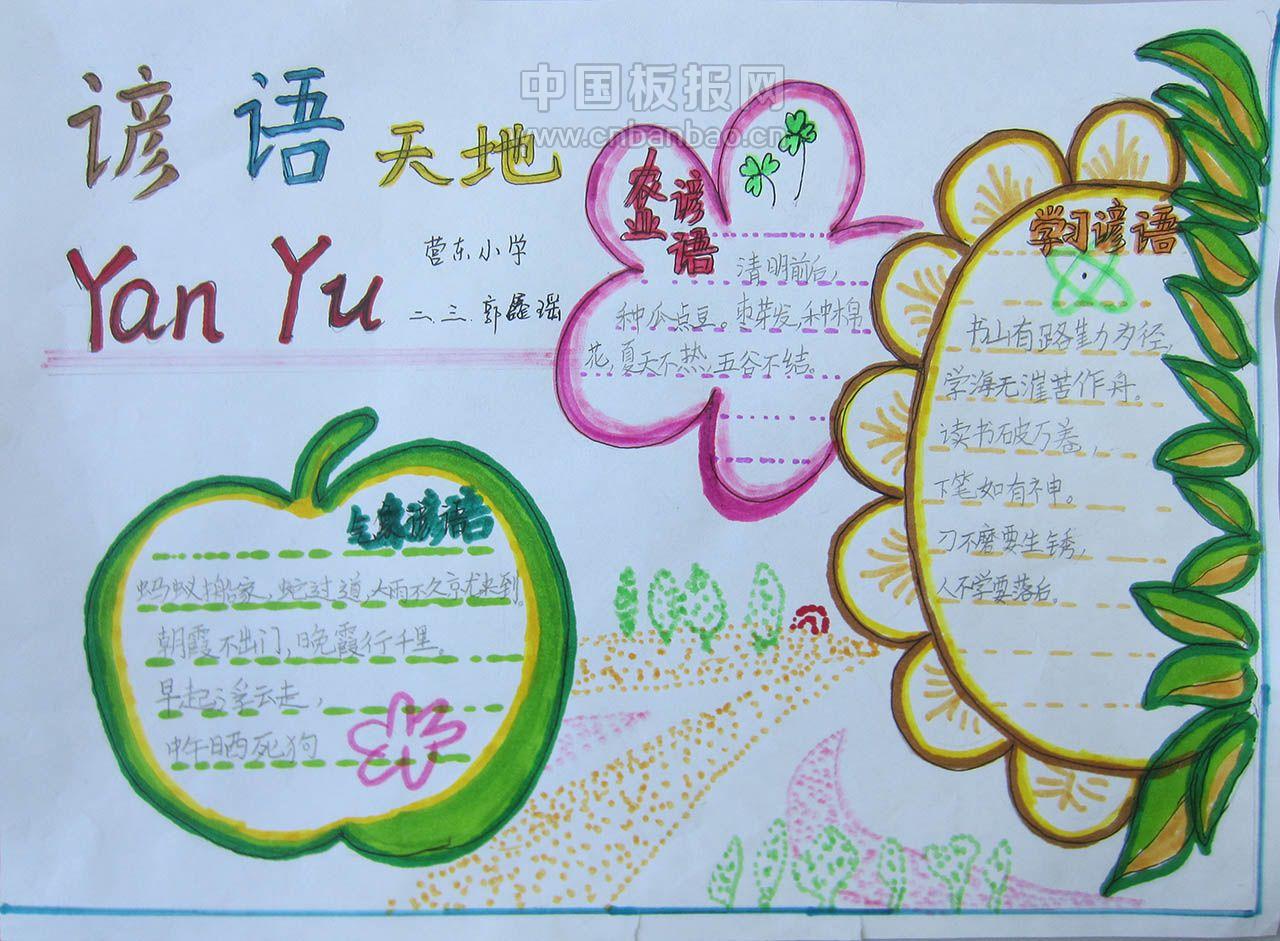 中国板报网
www.cnbanbao.cn
谚语天地
Yan Yu
营东小学
二.三.郭鑫瑶
农业谚语
清明前后,
种瓜点豆。枣芽发,种棉
花,夏天不热,五谷不结。
学习谚语
书山有路为径,
学海无涯苦作舟。
读书破万卷,
下笔如有神。
刀不磨要生锈,
人不学要落后。
气象谚语
蚂蚁搬家,蛇过道,大雨不久就来到。
朝霞不出门,晚霞行千里。
早起浮云走,
中午晒死狗